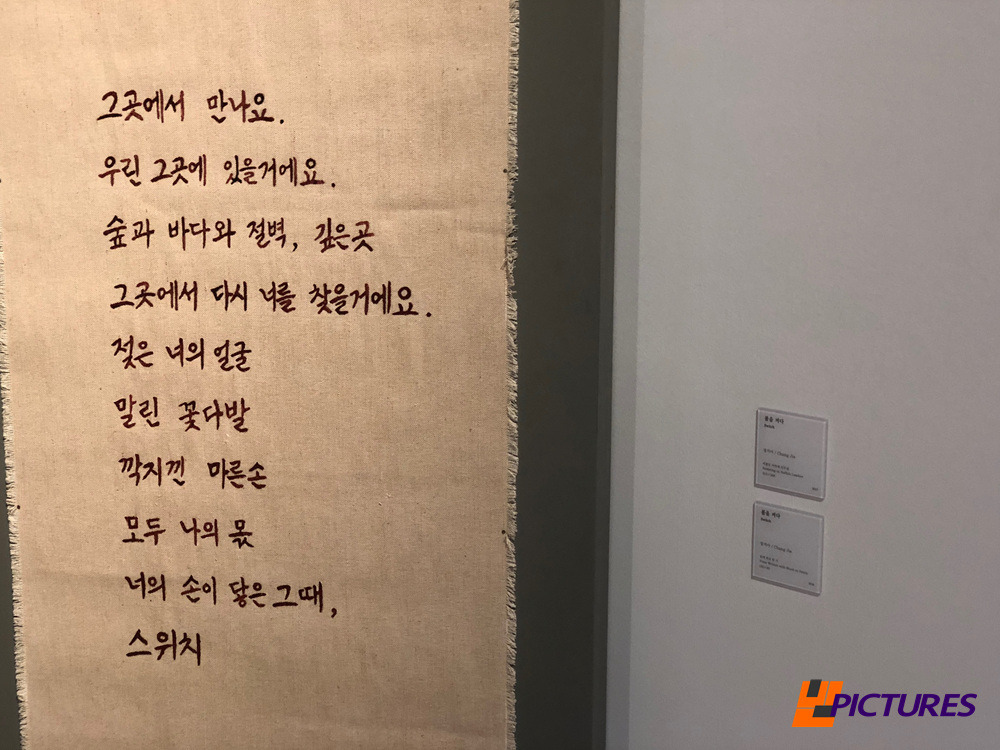 그곳에서 만나요.
우린 그곳에 있을거에요.
숲과 바다와 절벽, 깊은곳
그곳에서 다시 너를 찾을거에요.
젖은 너의 얼굴
말린 꽃다발
깍지낀 마른손
모두 나의 몫
너의 손이 닿은 그때,
스위치
불을 켜다
Switch
불을 켜다
Switch
PICTURES